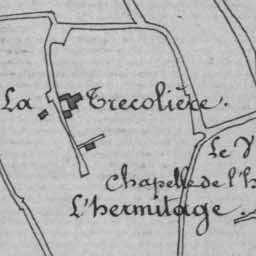 La Trecolière.
Le
Chapelle de l'h
L'hermitage.